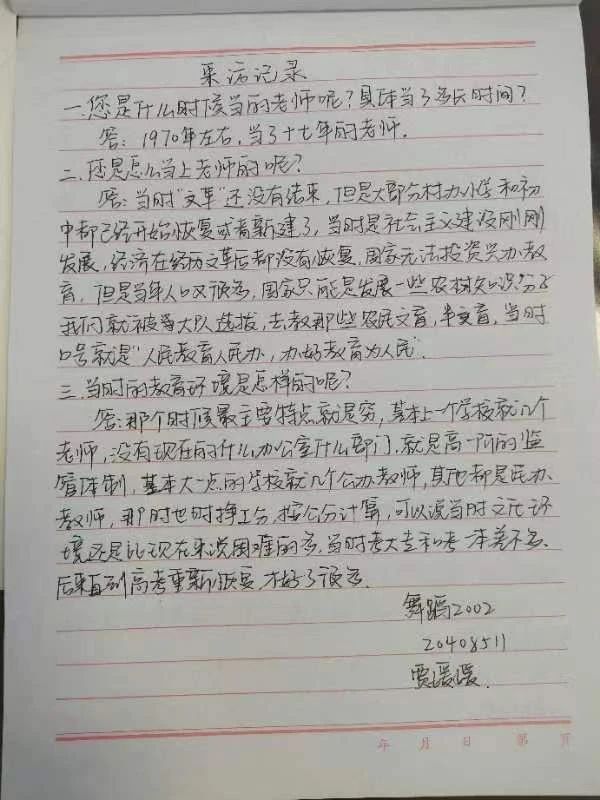 采访记录
一.您是什么时候当的老师呢?具体当了多长时间?
答:1970年左右,当了十七年的老师.
二.您是怎么当上老师的呢?
答:当时"文革"还没有结束,但是大部分村办小学和初
中都已经开始恢复或者新建了,当时是社会主义建设刚刚
发展,经济在经历文革后都没有恢复,国家无法投资兴办教
育,但是当年人口又很多,国家只能是发展一些农村知识分子
我们就被等大队选拔,去教那些农民文盲,半文盲,当时
口号就是"人民教育人民办,办好教育为人民".
三.当时的教育环境是怎样的呢?
答:那个时候最主要特点就是穷,基本上一个学校就几个
老师,没有现在的什么办公室什么部门,就是高一阶的监
管体制,基本大一点的学校就几个公办教师,其他都是民办
教师,那时也时挣工分,按公分计算,可以说当时文化环
境还是比现在来说困难的多,当时考大专和考一本差不多.
后来直到高考重新恢复,才好了很多.
舞蹈2002
20408511
贾媛媛.
年 月 日 第 页